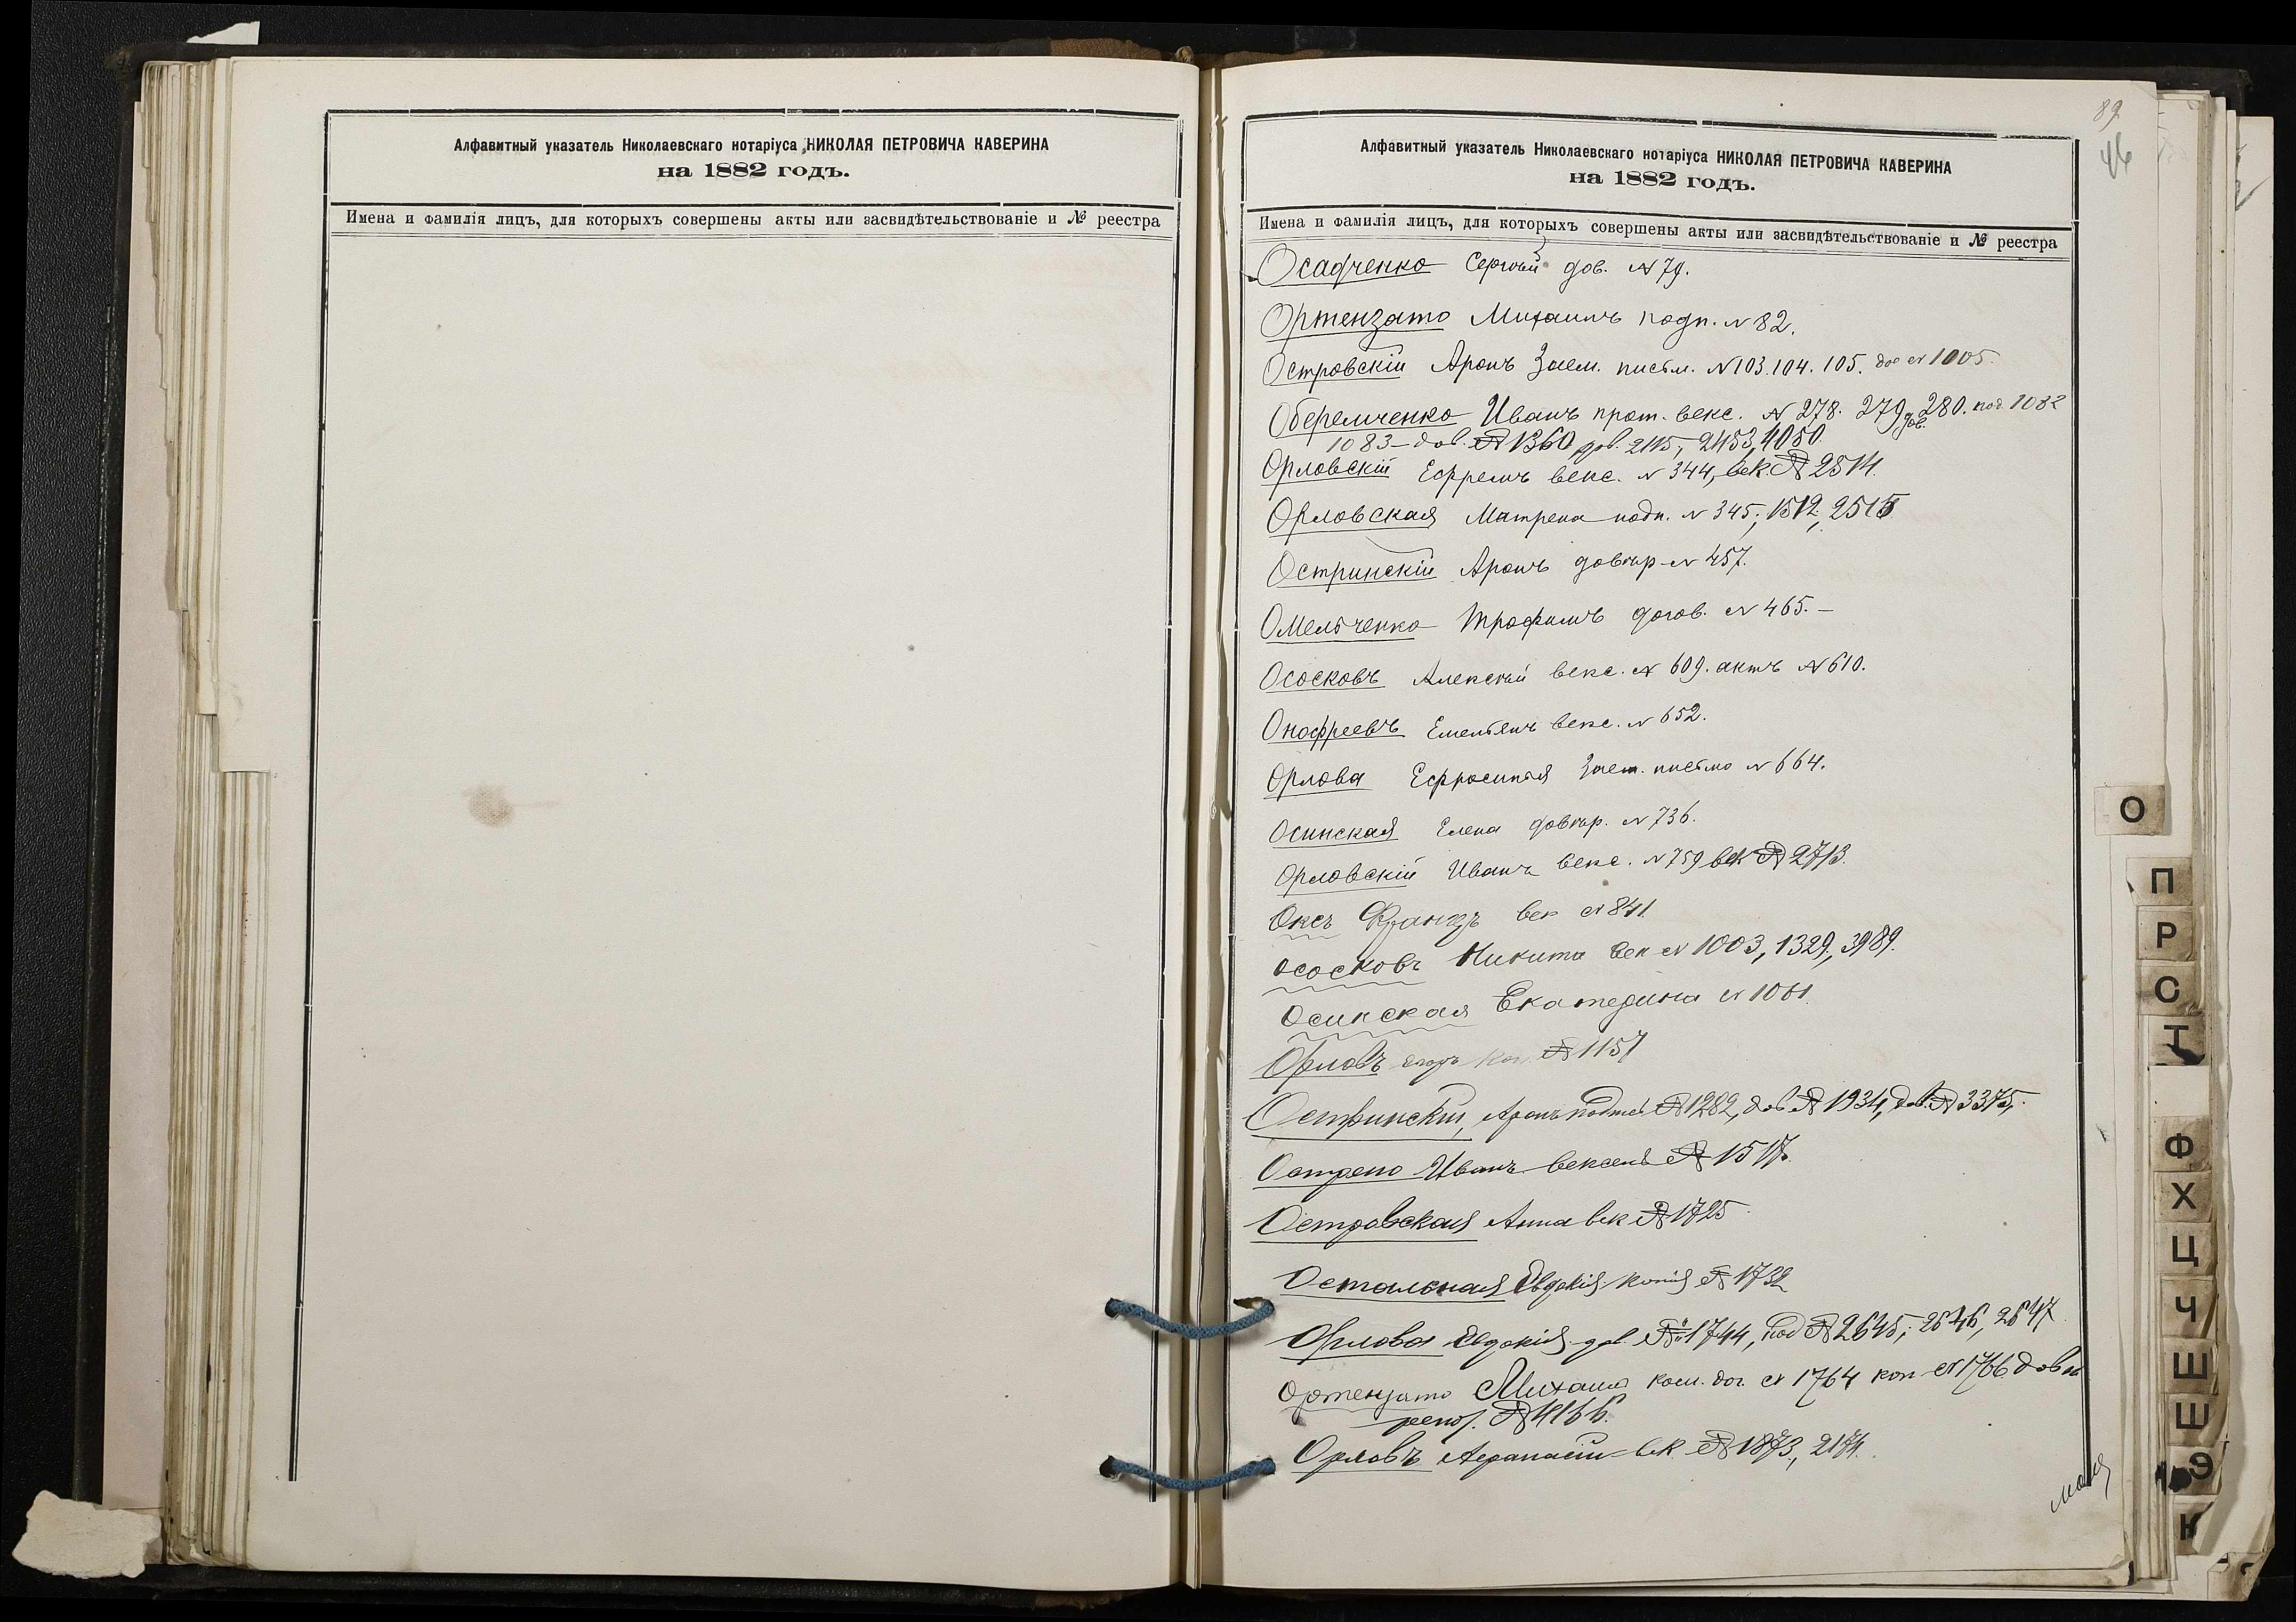 Алфавитный указатель Николаевскаго нотаріуса НИКОЛАЯ ПЕТРОВИЧА КАВЕРИНА
на 1882 годъ.
Имена и фамилія лицъ, для которыхъ совершены акты или засвидѣтельствованіе и № реестра
89
46
Алфавитный указатель Николаевскаго нотаріуса НИКОЛАЯ ПЕТРОВИЧА КАВЕРИНА
на 1882 годъ.
Имена и фамилія лицъ, для которыхъ совершены акты или засвидѣтельствованіе и № реестра
Осадченко Сергѣй дов. № 79.
Ортензато Михаилъ подп. № 82.
Островскій Аронъ Заем. письм. № 103. 104. 105. дов № 1005.
Оберемченко Иванъ прот. векс. № 278. 279 280. под. 1082
дов.
1083 – дов. № 1360 дов. 2115, 2453, 4050.
Орловскій Ефремъ векс. № 344, век. № 2514.
Орловская Матрена подп. № 345, 1512, 2515
Остринскій Аронъ довѣр № 457.
Омельченко Трофимъ догов. № 465. –
Ососковъ Алексѣй векс. № 609. актъ № 610.
Онофреевъ Емельянъ векс. № 652.
Орлова Ефросинья Заем. письмо № 664.
Осинская Елена довѣр. № 736.
Орловскій Иванъ векс. № 759 век № 2713.
Оксъ Францъ век № 841
Ососковъ Никита век № 1003, 1329, 3989.
Осинская Екатерина № 1061.
Орловъ Егоръ коп. № 1157
Остринскій, Аронъ № 1282, дов № 1934, дов. № 3375,
Иванъ вексель № 1517.
Островская Анна век № 1725
Остальская Евдокія копія № 1732
Орлова Евдокія дов. № 1744, под № 2645, 2646, 2647
Ортензато Михаилъ дог. № 1764 коп № 1766 дов №
№ 4166.
Орловъ Афанасій век. № 1873, 2174.
О
П
Р
С
Т
Ф
Х
Ц
Ч
Ш
Щ
Э